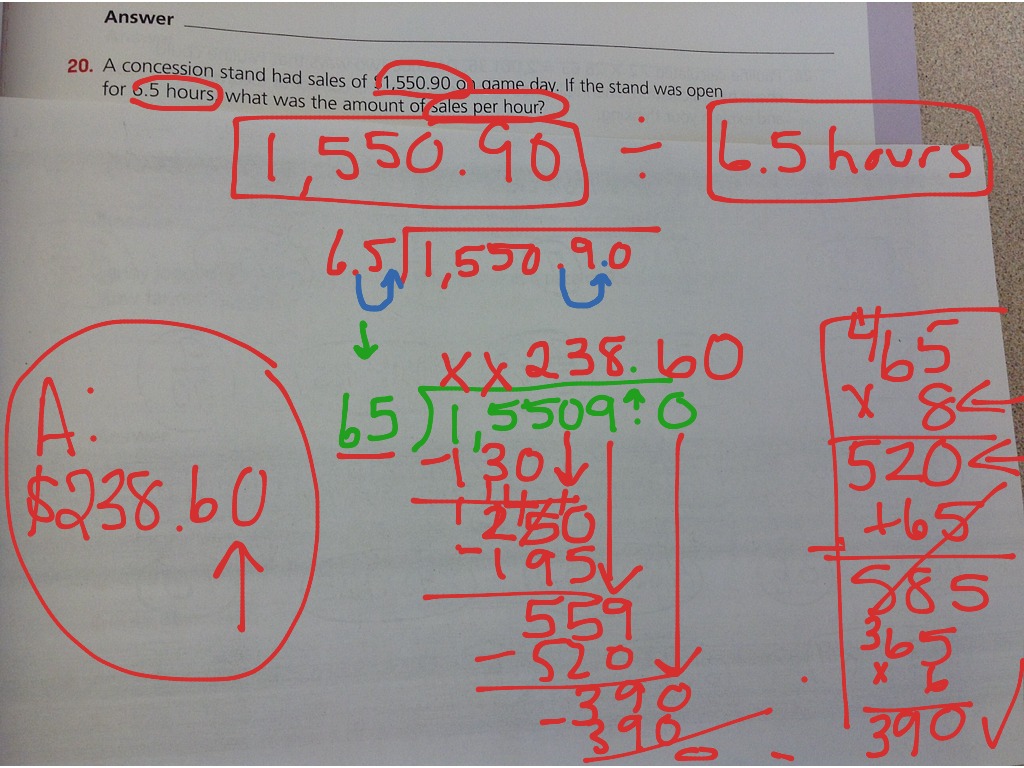 Answer
20. A concession stand had sales of $1,550.90 on game day. If the stand was open
for 6.5 hours, what was the amount of sales per hour?
1,550.90 ÷ 6.5 hours
6.5 1,550.9.0
xx238.60
65 1,5509.0
-130
250
-195
559
-520
390
-390
0
A:
$238.60
4
65
x 8
520
+65
585
3
65
x 6
390